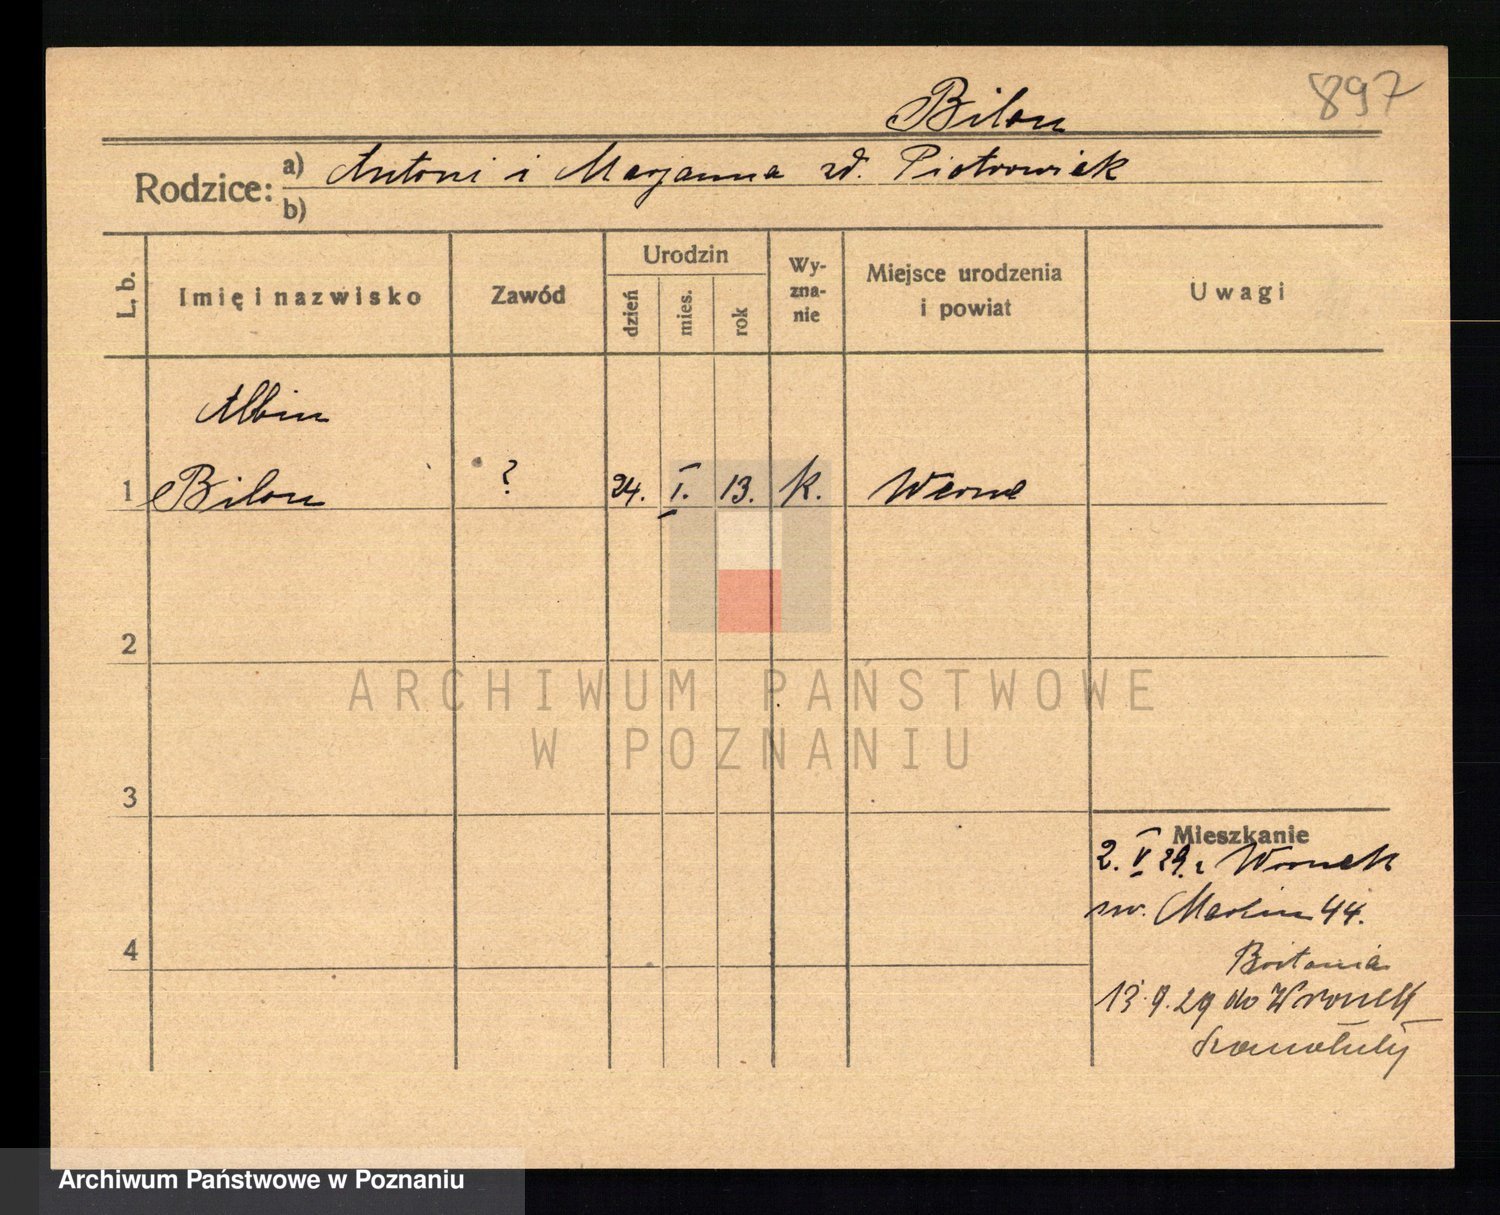 897
Bilon
Rodzice: a) Antoni i Marjanna zd. Piotrowiak
b)
L. b.
Imię i nazwisko
Zawód
Urodzin
dzień
mies.
rok
Wy-
zna-
nie
Miejsce urodzenia
i powiat
Uwagi
Albin
1 Bilon ? 24. I. 13. k. Werne
2
ARCHIWUM PAŃSTWOWE
W POZNANIU
3
Mieszkanie
2. V 29. z Wronek
św. Marcin 44.
4
13.9.29 do Wronek
Szamotuły
Archiwum Państwowe w Poznaniu